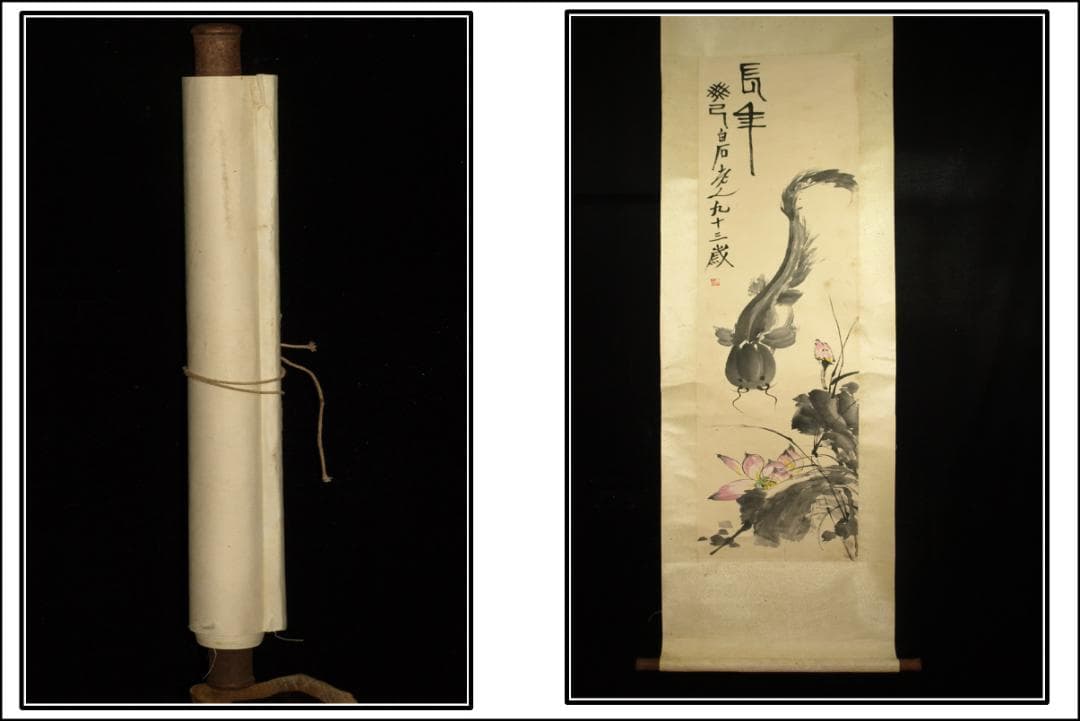 長年
癸巳白石老人九十三歲